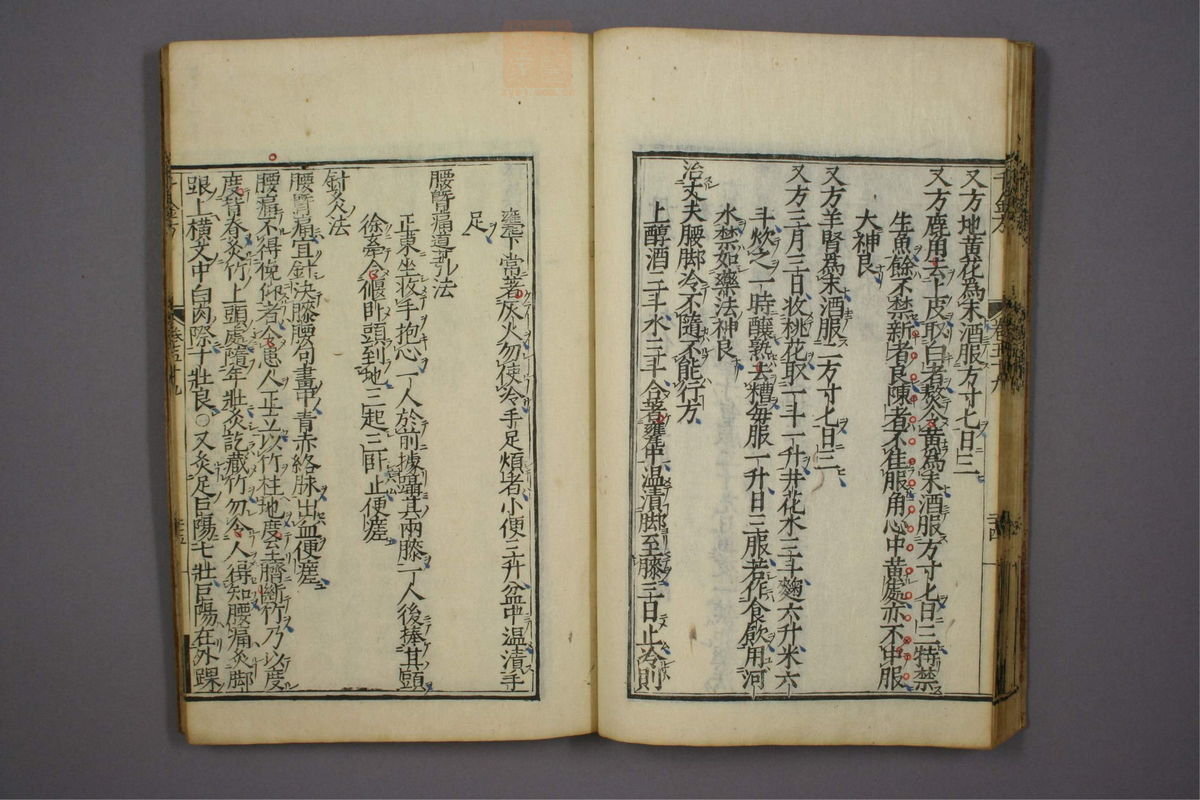 又方地黃花爲末酒服方寸匕日三
又方鹿角去上皮取白者熬令黃爲末酒服方寸匕日三特禁
生魚餘不禁新者良陳者不佳服角心中黃處亦不中服
大神良
又方羊腎爲末酒服二方寸匕日三
又方三月三日收桃花取一斗一升井花水三斗麴六升米六
斗炊之一時釀熟去糟每服一升日三服若作食飲用河
水禁如藥法神良
治丈夫腰脚冷不隨不能行方
上醇酒三斗水三斗合著甕中溫漬脚至膝三日止冷則
甕下常著灰火勿使冷手足煩者小便三升盆中溫漬手
足
腰臂痛導引法
正東坐收手抱心一人於前據躡其兩膝一人後捧其頭
徐牽令偃卧頭到地三起三卧止便瘥
針灸法
腰臂痛宜針決膝腰句畫中青赤絡脉出血便瘥
腰痛不得俛仰者令患人正立以竹柱地度至臍斷竹乃以度
度背脊灸竹上頭處隨年壯灸訖藏竹勿令人得知腰痛灸脚
跟上橫文中白肉際十壯良○又灸足巨陽七壯巨陽在外踝